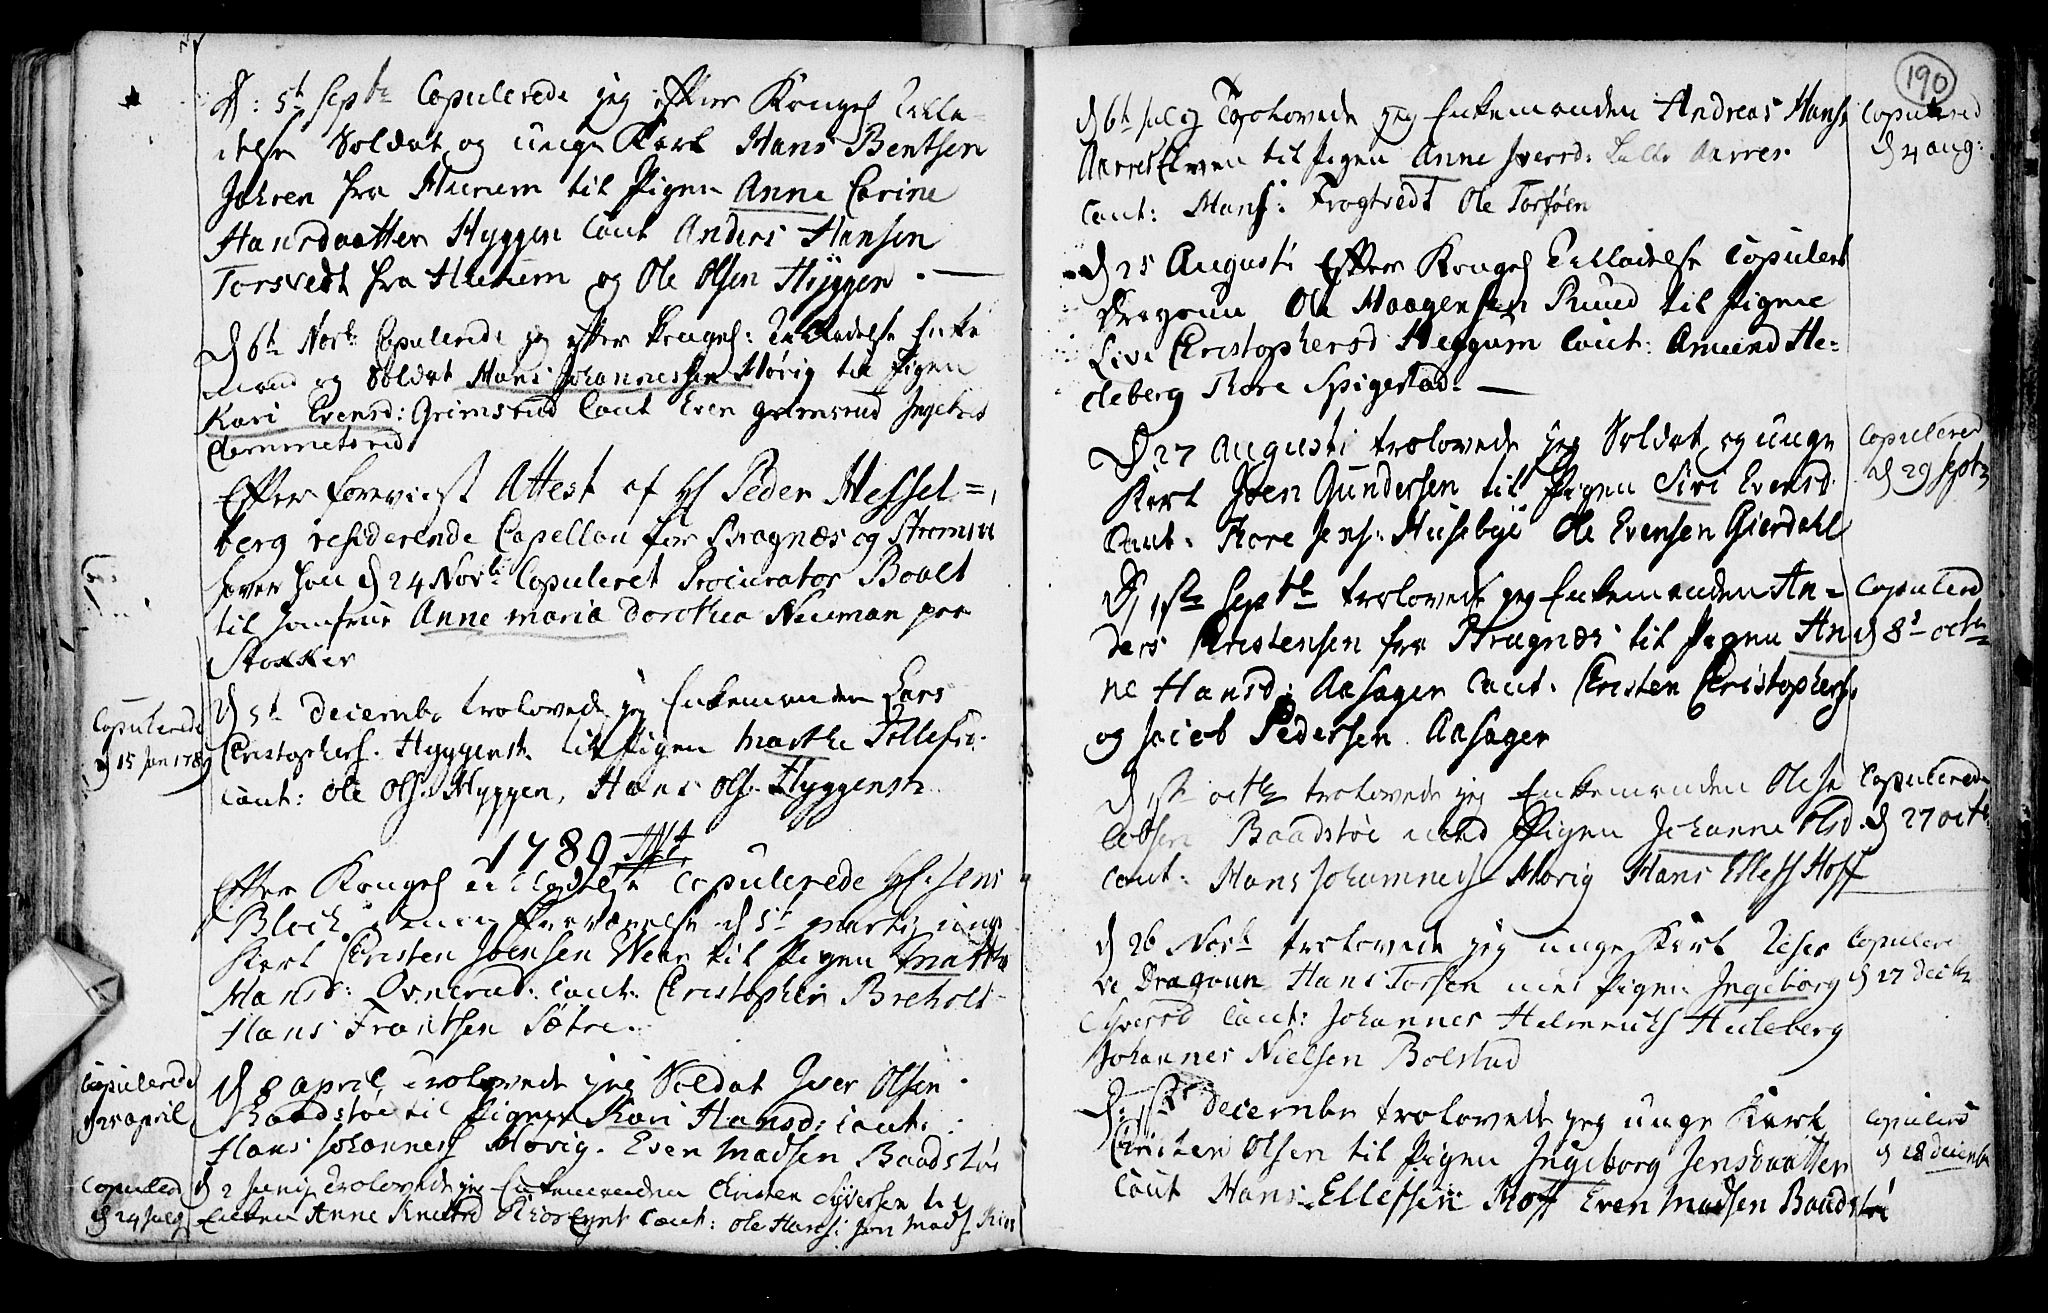 D: 5t Septr Copulerede jeg efter Konges Tilla-
delse Soldat og unge Karl Hans Bentsen
Johren fra Hurum til Pigen Anne Carine
Hansdaatter Hyggen Caut Anders Hansen
Torsvedt fra Hurum og Ole Olsen Hyggen.
D 6t Novb: Copulerede jeg efter Konges: Tilladelse Enke
mand og Soldat Hans Johannessen Mørig til Pigen
Kari Evensd: Grimsrud Caut Even Grimsrud Ingebret
Clemmetsrud
Efter foreviist Attest af H Peder Hessel=
berg residerende Capellan for Bragnæs og Strømsøe
haver han d 24 Novb: Copuleret Procurator Boalt
til Jomfrue Anne Maria Dorothea Neuman paa
Stokker
Copulerede
d 15 Jan 1789
D 5t Decembr trolovede jeg Enkemanden Lars
Christophers. Hyggenstr. til Pigen Marthe Tollefsd.
Caut: Ole Ols. Hyggen, Hans Ols. Hyggenstr.
1789
Efter Konges Tilladelse Copulerede H. Jens
Bloch i min Fraværelse d 5t Martij unge
Karl Christen Joensen Wear til Pigen Marthe
Hansd: Caut. Christopher Breholt
Hans Frantsen Sætre.
Copulerede
d 25 april
D 8 April trolovede jeg Soldat Iver Olsen
Baadstøe til Pigen Kari Hansd: Caut:
Hans Johanness Mørig. Even Madsen Baadstøe
Copulered
d 24 July
d 2 Junij Trolovede jeg Enkemanden Christen Syversen til
Enken Anne Knutsd Caut: Ole Hans: Jon Mads
190
D 6t Julij Trolovede jeg Enkemanden Andreas Hans
Aarres Even til Pigen Anne Iversd: Lille Aarres
Caut: Hans: Frogtvedt Ole Torføen
Copulered
d 4 aug:
D 25 Augusti Efter Konges Tilladelse Copuleret
Dragoun Ole Haagensen Ruud til Pigen
Live Christophersd Heggum Caut: Amund He=
deberg Thore Spigestad.
D 27 Augusti trolovede jeg Soldat og unge
Karl Joen Gundersen til Pigen Siri Evensd
Caut. Thore Jens: Husebye Ole Evensen Gierdahl
Copulered
d 29 Septr
D 1ste Septbr trolovede jeg Enkemanden An=
ders Christensen fra Bragnæs til Pigen An
ne Hansd: Aasager Caut. Christen Christophers.
og Jacob Pedersen Aasager
Copulered
d 8de octbr
D 1ste octbr trolovede jeg Enkemanden Ole Ja
cobsen Baadstøe med Pigen Johanne Olsd.
Caut: Hans Johannes Mørig Hans Elless Hoff
Copulerede
d 27 octb
d 26 Novbr trolovede jeg unge Karl Reser
ve Dragoun Hans Torsen med Pigen Ingeborg
Syversd Caut: Johannes Helmerichs Huleberg
Johannes Nielsen Bolstad
Copulered
d 27 decbr
D: 1ste December trolovede jeg unge Karl
Christen Olsen til Pigen Ingeborg Jensdaatter
Caut Hans Ellefsen Hoff Even Madsen Baadstøe
Copulered
d 28 decemb